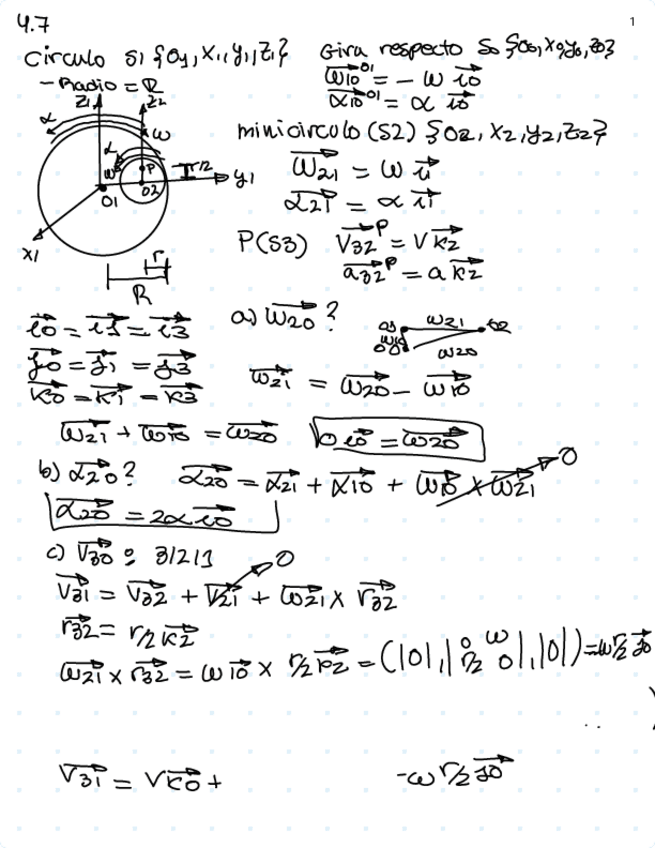 4.7
1
Circulo S1 {O1, X1, Y1, Z1} Gira respecto S0 {O0, X0, Y0, Z0}
- Radio = R
ω10^01 = - ω i0
α10^01 = α i0
minicirculo (S2) {O2, X2, Y2, Z2}
ω21 = ω i1
α21 = α i1
P(S3) V32^P = V k2
a32^P = a k2
Z1 Z2
α ω
α
ω P r/2 y1
O1 O2
x1
r
R
i0 = i1 = i3
j0 = j1 = j3
k0 = k1 = k3
a) ω20?
ω21
ω10
ω20
ω21 = ω20 - ω10
ω21 + ω10 = ω20 0 i0 = ω20
b) α20? α20 = α21 + α10 + ω10 x ω21 0
α20 = 2α i0
c) V30: 3/2/1 0
V31 = V32 + V21 + ω21 x r32
r32 = r/2 k2
ω21 x r32 = ω i0 x r/2 k2 = (|0|, |0 ω r/2 0|, |0|) = ω r/2 j0
V31 = V k0 + - ω r/2 j0